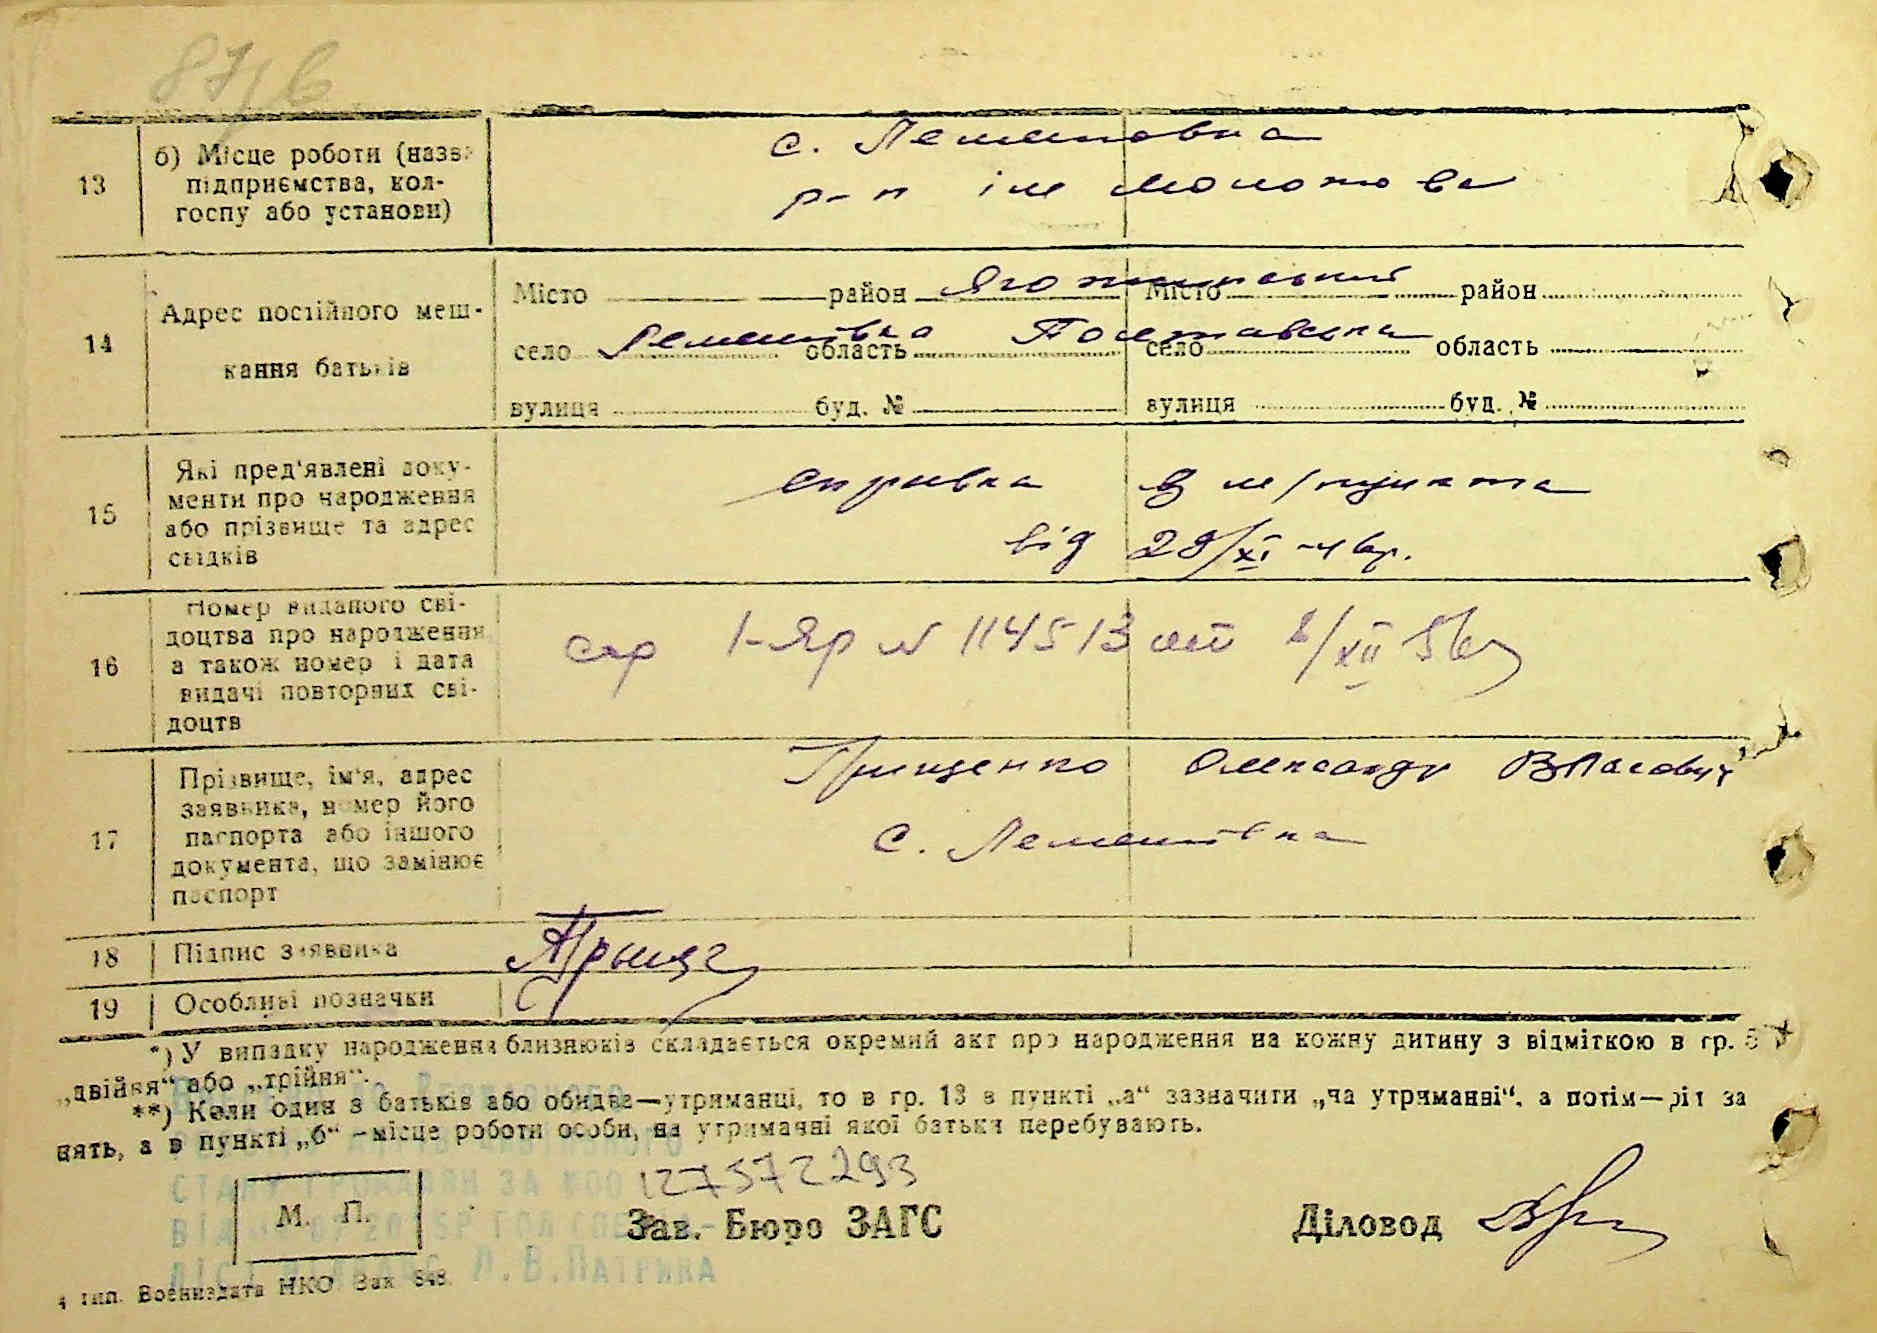 87/в
13
б) Місце роботи (назва
підприємства, кол-
госпу або установи)
с. Лемешовка
р-н ім Молотова
14
Адрес постійного меш-
кання батьків
Місто район Яготинський Місто район
село Лемешівка область Полтавська село область
вулиця буд. № вулиця буд. №
15
Які пред'явлені доку-
менти про народження
або прізвище та адрес
свідків
справка з м/пункта
від 29/XI
16
Номер виданого сві-
доцтва про народження
а також номер і дата
видачі повторних сві-
доцтв
I-Яр № 114513 от /XII 56
17
Прізвище, ім'я, адрес
заявника, номер його
паспорта або іншого
документа, що замінює
паспорт
Грищенко Олександр Власович
с. Лемешівка
18
Підпис заявника
19
Особливі позначки
*) У випадку народження близнюків складається окремий акт про народження на кожну дитину з відміткою в гр. 5
„двійня“ або „трійня“.
**) Коли один з батьків або обидва—утриманці, то в гр. 13 в пункті „а“ зазначити „на утриманні“, а потім—рід за
нять, а в пункті „б“ –місце роботи особи, на утриманні якої батьки перебувають.
Державного
актів цивільного
стану громадян за №00 127572293
від 07 20 р гол спеціа-
ліст Л.В.Патрика
М. П.
Зав. Бюро ЗАГС
Діловод
4 тип. Воениздата НКО Зак 848.